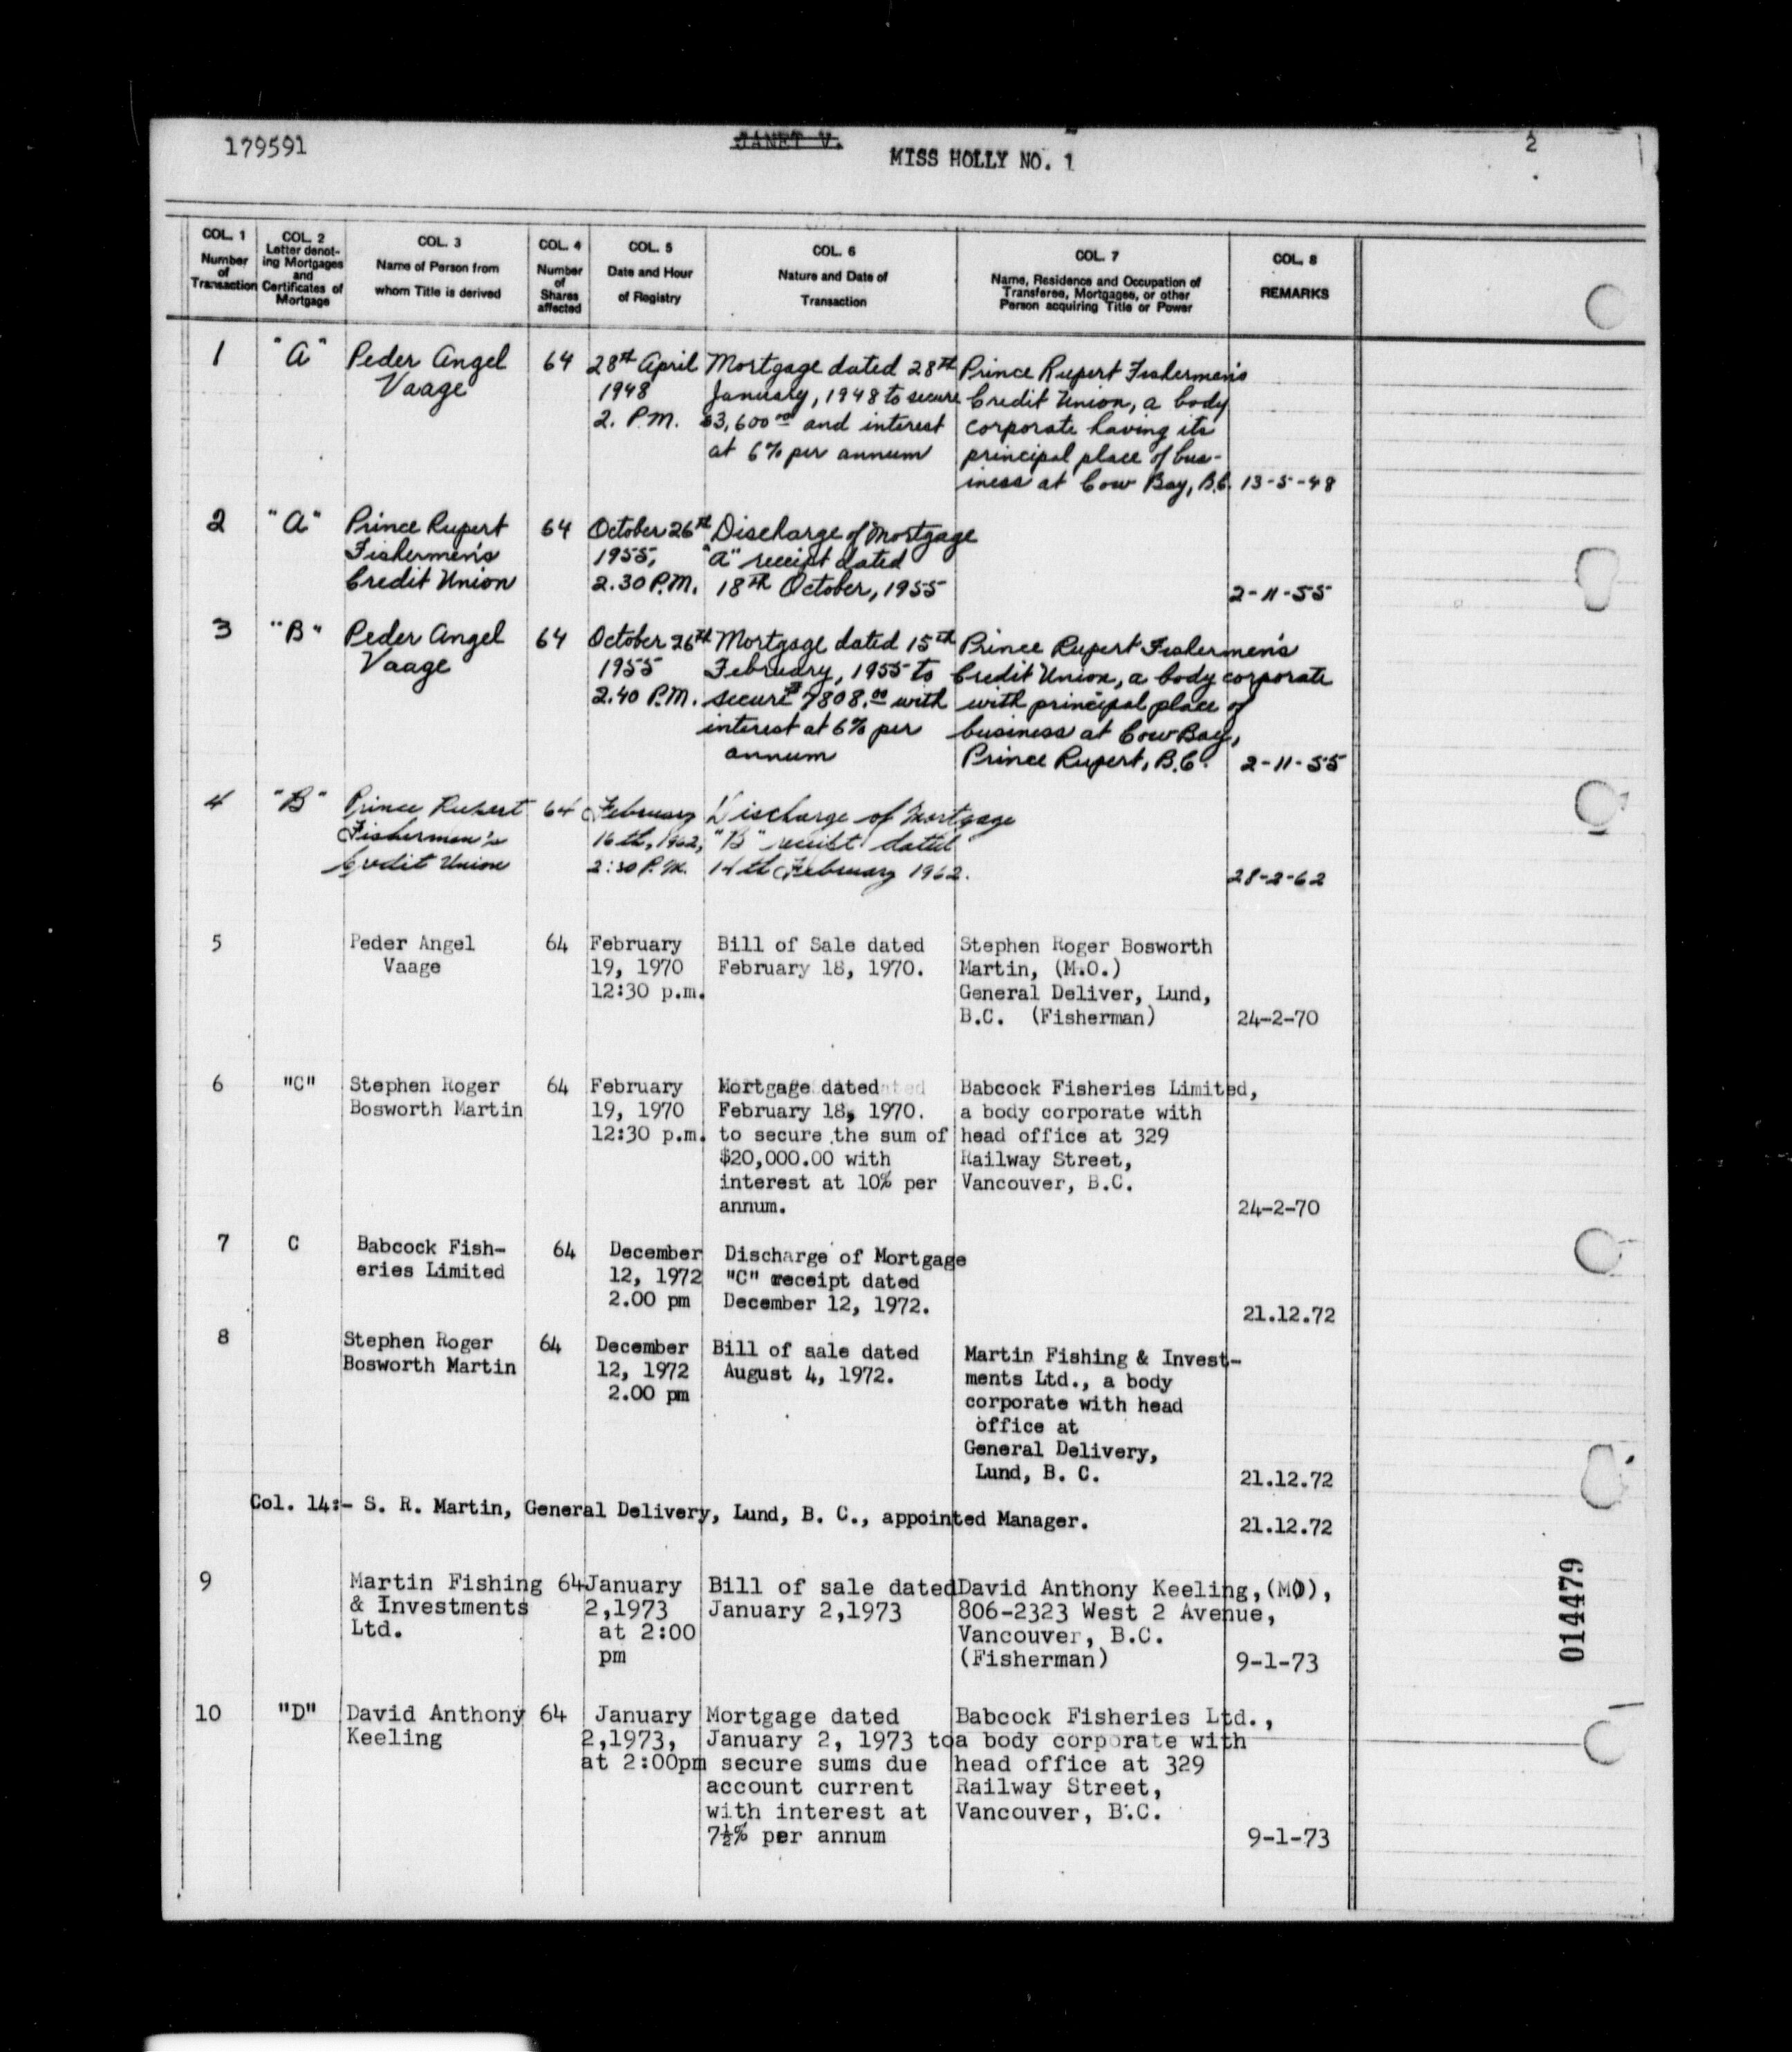 179591
JANET V.
MISS HOLLY NO. 1
2
COL. 1
Number
of
Transaction
COL. 2
Letter denot-
ing Mortgages
and
Certificates of
Mortgage
COL. 3
Name of Person from
whom Title is derived
COL. 4
Number
of
Shares
affected
COL. 5
Date and Hour
of Registry
COL. 6
Nature and Date of
Transaction
COL. 7
Name, Residence and Occupation of
Transferee, Mortgagee, or other
Person acquiring Title or Power
COL. 8
REMARKS
1
"A"
Peder Angel
Vaage
64
28th April
1948
2. P.M.
Mortgage dated 28th
January, 1948 to secure
$3,600.00 and interest
at 6% per annum
Prince Rupert Fishermen's
Credit Union, a body
corporate having its
principal place of bus-
iness at Cow Bay, B.C.
13-5-48
2
"A"
Prince Rupert
Fishermen's
Credit Union
64
October 26th
1955,
2.30 P.M.
Discharge of Mortgage
"A" receipt dated
18th October, 1955
2-11-55
3
"B"
Peder Angel
Vaage
64
October 26th
1955
2.40 P.M.
Mortgage dated 15th
February, 1955 to
secure $7808.00 with
interest at 6% per
annum
Prince Rupert Fishermen's
Credit Union, a body corporate
with principal place of
business at Cow Bay,
Prince Rupert, B.C.
2-11-55
4
"B"
Prince Rupert
Fisherman's
Credit Union
64
February
16th, 1962,
2:30 P.M.
Discharge of Mortgage
"B" receipt dated
14th February 1962.
28-2-62
5
Peder Angel
Vaage
64
February
19, 1970
12:30 p.m.
Bill of Sale dated
February 18, 1970.
Stephen Roger Bosworth
Martin, (M.O.)
General Deliver, Lund,
B.C. (Fisherman)
24-2-70
6
"C"
Stephen Roger
Bosworth Martin
64
February
19, 1970
12:30 p.m.
Mortgage dated
February 18, 1970.
to secure the sum of
$20,000.00 with
interest at 10% per
annum.
Babcock Fisheries Limited,
a body corporate with
head office at 329
Railway Street,
Vancouver, B.C.
24-2-70
7
C
Babcock Fish-
eries Limited
64
December
12, 1972
2.00 pm
Discharge of Mortgage
"C" receipt dated
December 12, 1972.
21.12.72
8
Stephen Roger
Bosworth Martin
64
December
12, 1972
2.00 pm
Bill of sale dated
August 4, 1972.
Martin Fishing & Invest-
ments Ltd., a body
corporate with head
office at
General Delivery,
Lund, B. C.
21.12.72
Col. 14:- S. R. Martin, General Delivery, Lund, B. C., appointed Manager.
21.12.72
9
Martin Fishing
& Investments
Ltd.
64
January
2,1973
at 2:00
pm
Bill of sale dated
January 2,1973
David Anthony Keeling,(MO),
806-2323 West 2 Avenue,
Vancouver, B.C.
(Fisherman)
9-1-73
10
"D"
David Anthony
Keeling
64
January
2,1973,
at 2:00pm
Mortgage dated
January 2, 1973 to
secure sums due
account current
with interest at
7½% per annum
Babcock Fisheries Ltd.,
a body corporate with
head office at 329
Railway Street,
Vancouver, B.C.
9-1-73
014479